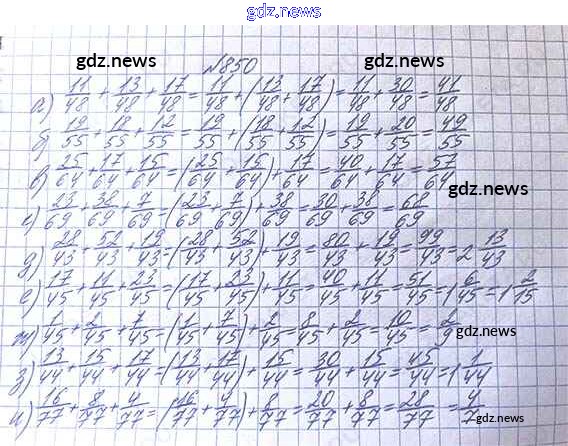 gdz.news
gdz.news gdz.news
№850
а) 11/48 + 13/48 + 17/48 = 11/48 + (13/48 + 17/48) = 11/48 + 30/48 = 41/48
б) 19/55 + 18/55 + 12/55 = 19/55 + (18/55 + 12/55) = 19/55 + 20/55 = 49/55
в) 25/64 + 17/64 + 15/64 = (25/64 + 15/64) + 17/64 = 40/64 + 17/64 = 57/64
gdz.news
г) 23/69 + 38/69 + 7/69 = (23/69 + 7/69) + 38/69 = 30/69 + 38/69 = 68/69
д) 28/43 + 52/43 + 19/43 = (28/43 + 52/43) + 19/43 = 80/43 + 19/43 = 99/43 = 2 13/43
е) 17/45 + 11/45 + 23/45 = (17/45 + 23/45) + 11/45 = 40/45 + 11/45 = 51/45 = 1 6/45 = 1 2/15
ж) 1/45 + 2/45 + 7/45 = (1/45 + 7/45) + 2/45 = 8/45 + 2/45 = 10/45 = 2/9
з) 13/44 + 15/44 + 17/44 = (13/44 + 17/44) + 15/44 = 30/44 + 15/44 = 45/44 = 1 1/44
и) 16/77 + 8/77 + 4/77 = (16/77 + 4/77) + 8/77 = 20/77 + 8/77 = 28/77 = 4/7
gdz.news